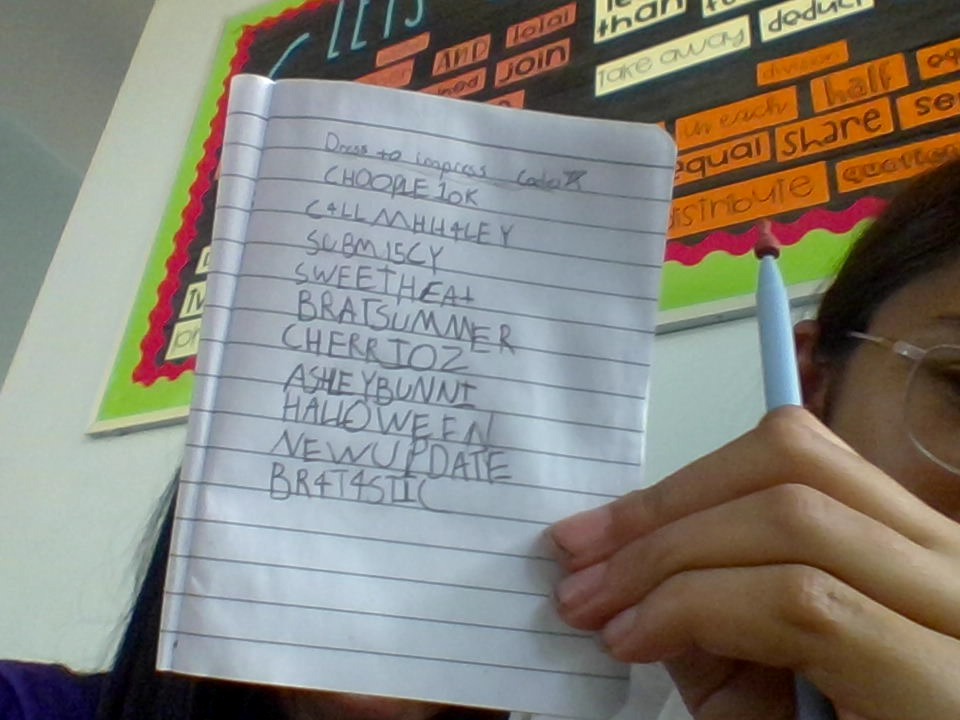 LETS
AND
total
join
than
Take away
deduct
division
in each
half
equal
share
distribute
Dress to Impress Codes
CHOOPLE10K
C4LLMHH4LEY
SUBM15CY
SWEETHEAt
BRATSUMMER
CHERRIOZ
ASHLEYBUNNI
HALLOWEEN
NEWUPDATE
BR4T4STIC